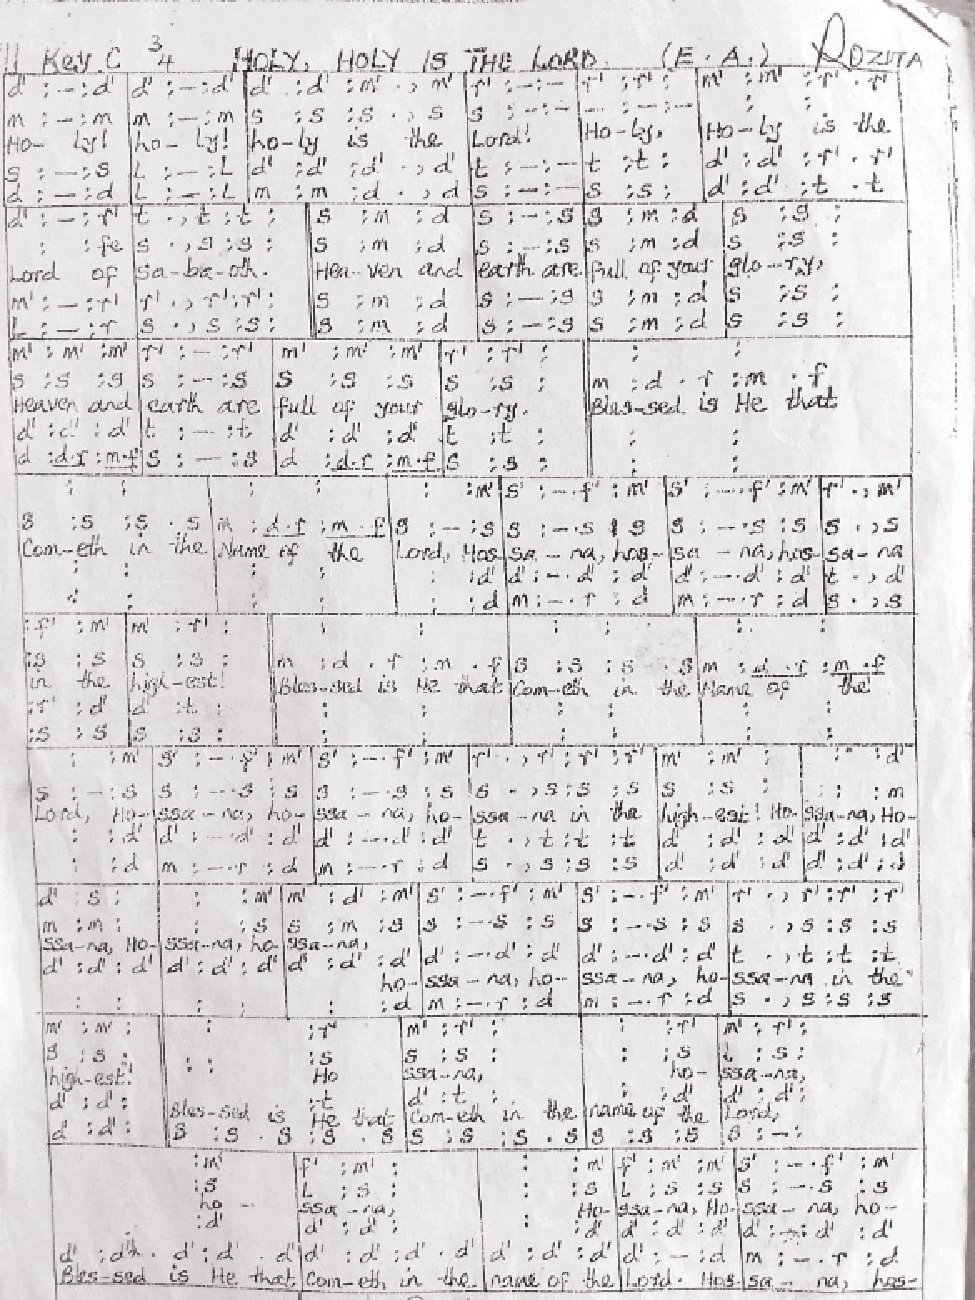 Key C 3/4 HOLY, HOLY IS THE LORD. (E.A.) ROZUTA
d' : – : d' | d' : – : d' | d' : d' : m' . , m' | r' : – : – | r' : r' : | m' : m' : r' . r'
m : – : m | m : – : m | s : s : s . , s | s : – : – | – : – : – | : :
Ho- ly! | ho- ly! | ho-ly is the | Lord! | Ho-ly, | Ho-ly is the
s : – : s | L : – : L | d' : d' : d' . , d' | t : – : – | t : t : | d' : d' : r' . r'
d : – : d | L : – : L | m : m : d . , d | s : – : – | s : s : | d' : d' : t . t
d' : – : r' | t . , t : t : | s : m : d | s : – : s | s : m : d | s : s :
: : fe | s . , s : s : | s : m : d | s : – : s | s : m : d | s : s :
Lord of | Sa-ba-oth. | Hea-ven and | earth are | full of your | glo-ry,
m' : – : r' | r' . , r' : r' : | s : m : d | s : – : s | s : m : d | s : s :
L : – : r | s . , s : s : | s : m : d | s : – : s | s : m : d | s : s :
m' : m' : m' | r' : – : r' | m' : m' : m' | r' : r' : | : :
s : s : s | s : – : s | s : s : s | s : s : | m : d . r : m . f
Heaven and | earth are | full of your | glo-ry. | Bles-sed is He that
d' : d' : d' | t : – : t | d' : d' : d' | t : t : | : :
d : d.r : m.f | s : – : s | d : d.r : m.f | s : s : | : :
: : | : : | : : m' | s' : – . f' : m' | s' : – . f' : m' | r' . , m'
s : s : s . s | m : d.r : m.f | s : – : s | s : – . s : s | s : – . s : s | s . , s
Com-eth in the | Name of the | Lord, Hos | sa - na, hos- | sa - na, hos- | sa-na
: : | : : | : : d' | d' : – . d' : d' | d' : – . d' : d' | t . , d'
: : | : : | : : d | m : – . r : d | m : – . r : d | s . , s
: f' : m' | m' : r' : | : : | : : | : :
: s : s | s : s : | m : d . r : m . f | s : s : s . s | m : d.r : m.f
in the | high-est! | Bles-sed is He that | Com-eth in the | Name of the
: r' : d' | d' : t : | : : | : : | : :
: s : s | s : s : | : : | : : | : :
: : m' | s' : – . f' : m' | s' : – . f' : m' | r' . , r' : r' : r' | m' : m' : | : : d'
s : – : s | s : – . s : s | s : – . s : s | s . , s : s : s | s : s : | : : m
Lord, Ho- | ssa-na, ho- | ssa-na, ho- | ssa-na in the | high-est! Ho- | ssa-na, Ho-
: : d' | d' : – . d' : d' | d' : – . d' : d' | t . , t : t : t | d' : d' : d' | d' : d' : d'
: : d | m : – . r : d | m : – . r : d | s . , s : s : s | d' : d' : d' | d' : d' : d'
d' : s : | : : m' | m' : d' : m' | s' : – . f' : m' | s' : – . f' : m' | r' . , r' : r' : r'
m : m : | : : s | s : m : s | s : – . s : s | s : – . s : s | s . , s : s : s
ssa-na, Ho- | ssa-na, ho- | ssa-na,
d' : d' : d' | d' : d' : d' | d' : d' : d' | d' : – . d' : d' | d' : – . d' : d' | t . , t : t : t
ho- | ssa-na, ho- | ssa-na, ho- | ssa-na in the
: : | : : | : : d | m : – . r : d | m : – . r : d | s . , s : s : s
m' : m' : | : : r' | m' : r' : | : : r' | m' : r' :
s : s : | : : s | s : s : | : : s | L : s :
high-est! | Ho | ssa-na, | ho- | ssa-na,
d' : d' : | : t | d' : t : | : : d' | d' : d' :
Bles-sed is He that | Com-eth in the | name of the | Lord,
d' : d' : | s : s . s : s . s | s : s : s . s | s : s : s | s : – :
: m' | f' : m' : | : : m' | f' : m' : m' | s' : – . f' : m'
: s | L : s : | : : s | L : s : s | s : – . s : s
ho - | ssa-na, | Ho- | ssa-na, Ho- | ssa-na, ho-
: d' | d' : d' : | : : d' | d' : d' : d' | d' : – . d' : d'
d' : d' . d' : d' . d' | d' : d' : d' . d' | d' : d' : d' | d' : – : d | m : – . r : d
Bles-sed is He that | Com-eth in the | name of the | Lord. Hos- | sa - na, hos-